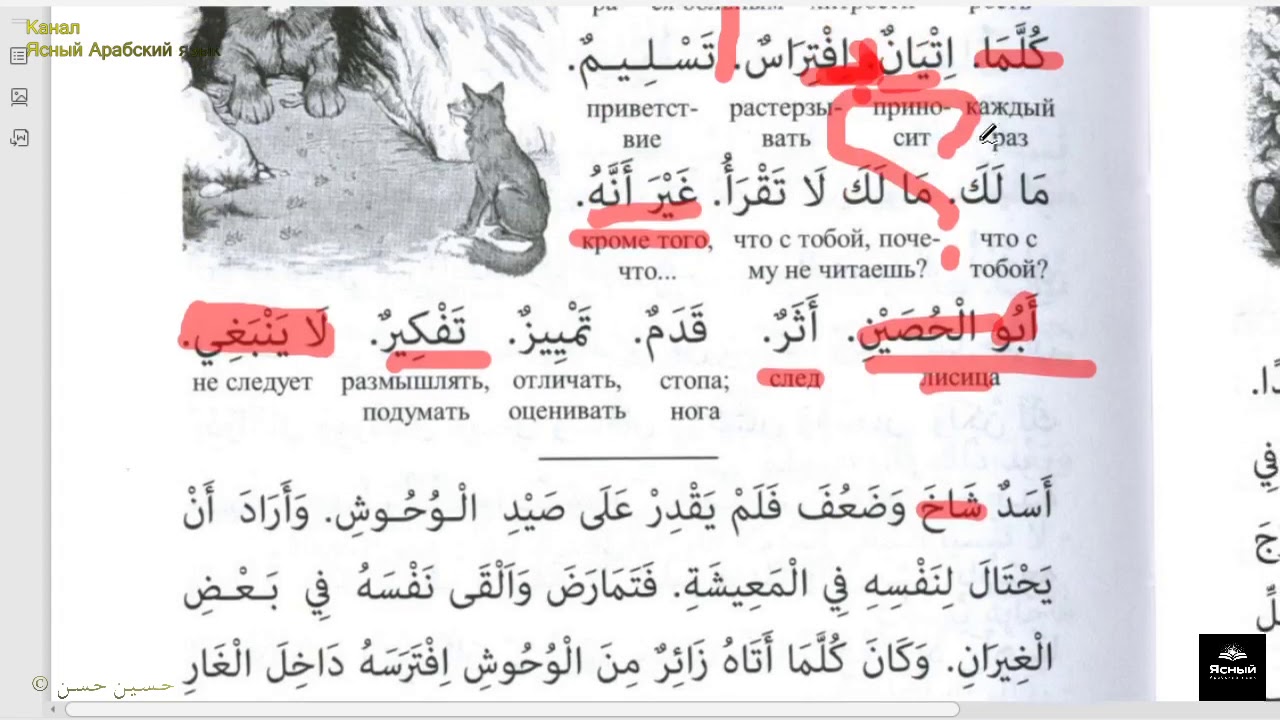 Канал
Ясный Арабский язык
كُلَّمَا. اِتْيَانٌ. اِفْتِرَاسٌ. تَسْلِيمٌ.
каждый прино- растерзы- приветст-
раз сит вать вие
مَا لَكَ. مَا لَكَ لَا تَقْرَأُ. غَيْرَ أَنَّهُ.
что с что с тобой, поче- кроме того,
тобой? му не читаешь? что...
أَبُو الْحُصَيْنِ. أَثَرٌ. قَدَمٌ. تَمْيِيزٌ. تَفْكِيرٌ. لَا يَنْبَغِي.
лисица след стопа; отличать, размышлять, не следует
нога оценивать подумать
أَسَدٌ شَاخَ وَضَعُفَ فَلَمْ يَقْدِرْ عَلَى صَيْدِ الْوُحُوشِ. وَأَرَادَ أَنْ
يَحْتَالَ لِنَفْسِهِ فِي الْمَعِيشَةِ. فَتَمَارَضَ وَاَلْقَى نَفْسَهُ فِي بَعْضِ
الْغِيرَانِ. وَكَانَ كُلَّمَا أَتَاهُ زَائِرٌ مِنَ الْوُحُوشِ اِفْتَرَسَهُ دَاخِلَ الْغَارِ
© حسين حسن
Ясный